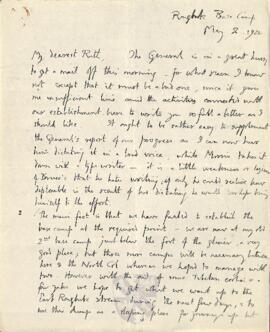 Rongbuk Base Camp
May 2. 1924
My dearest Ruth The General is in a great hurry
to get a mail off this morning - for what reason I know
not except that it must be a bad one, since it gives
me insufficient time amid the activities connected with
our establishment here to write you so full a letter as I
should like. It ought to be rather easy to supplement
the General's report of our progress as I can now hear
him dictating it in a loud voice, while Morris takes it
down with a type writer - it is a little weakness
of Bruce's that he hates writing; if only he could realise how
deplorable is the result of his dictating he would perhaps bring
himself to the effort.
The main fact is that we have failed to establish the
base camp at the required point - we are now at my old
2nd base camp just below the foot of the glacier, a very
good place; but three more camps will be necessary between
here & the North Col whereas we hoped to manage with
two. However with the aid of some Tibetan coolies &
yaks we hope to get what we want up to the
East Rongbuk stream during the next few days, & to
use this dump as a place for journeys up but